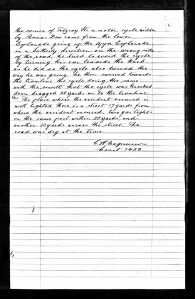 the corner of Fitzroy St a motor cycle ridden
by Thomas Dow came from the lower
Esplanade going up the Upper Esplanade
in a                direction on the wrong side
of the road, he tried to avoid the cycle
by turning his car towards the kerb
as he did so the cycle also turned the
way he was going. He then turned towards
the tramline the cycle doing the same
with the result that the cycle was
been dragged      yards on to the tramline
The place where the accident occurred is
well lighted there is a street     yards from
where the accident occurred. Two gas lights
on the same post within      yards and
another      yards across the street. The
road was dry at the time.
Const